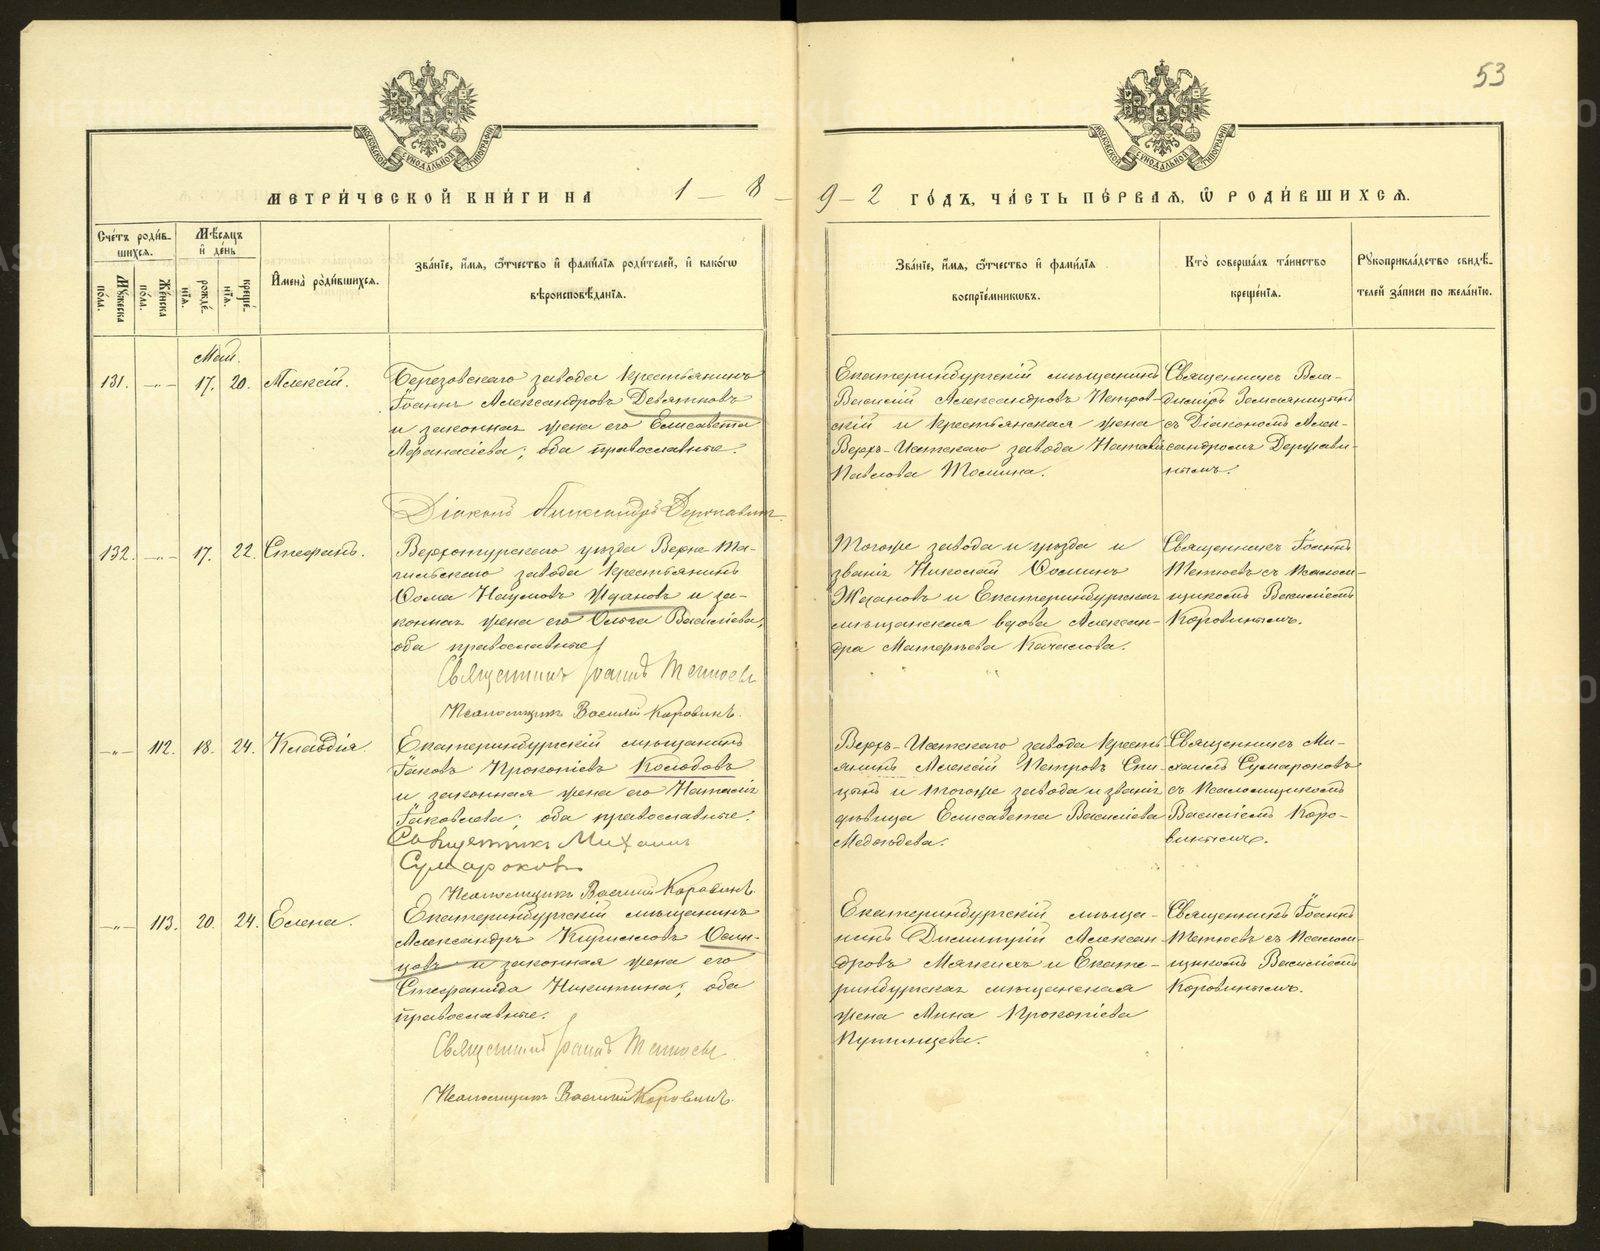 53
МОСКОВСКОЙ СѴНОДАЛЬНОЙ ТИПОГРАФІИ
МОСКОВСКОЙ СѴНОДАЛЬНОЙ ТИПОГРАФІИ
МЕТРИ́ЧЕСКОЙ КНИ́ГИ НА 1 – 8 – 9 – 2 ГО́ДЪ, ЧА́СТЬ ПЕ́РВАЯ, Ѡ РОДИ́ВШИХСЯ.
Сче́тъ роди́в-
шихся.
Му́жеска по́ла.
Же́нска по́ла.
Мѣ́сяцъ
и де́нь
рожде́нїя.
креще́нїя.
И҆мена̀ роди́вшихся.
Зва́нїе, и҆́мя, ѻ҆́тчество и҆ фами́лїя роди́телей, и҆ како́гѡ
вѣроисповѣ́данїя.
Зва́нїе, и҆́мя, ѻ҆́тчество и҆ фами́лїя
воспрїе́мникѡвъ.
Кто̀ соверша́лъ та́инство
креще́нїя.
Рꙋкоприкла́дство свидѣ́-
телей за́писи по жела́нїю.
Май.
131. —„— 17. 20. Алексій.
Березовскаго завода крестьянинъ
Іоаннъ Александровъ Девяшновъ
и законная жена его Елисавета
Афанасіева; оба православные.
Діаконъ Александръ Державинъ
Екатеринбургскій мѣщанинъ
Василій Александровъ Петров-
скій и крестьянская жена
Верхъ-Исетскаго завода Наталія
Павлова Томина.
Священникъ Вла-
диміръ Земляницынъ
съ Діакономъ Алек-
сандромъ Держави-
нымъ.
132. —„— 17. 22. Стефанъ.
Верхотурскаго уѣзда Верхне-Та-
гильскаго завода крестьянинъ
Ѳома Наумовъ Ждановъ и за-
конная жена его Ольга Василіева,
оба православные.
Священникъ Іоаннъ Тетюевъ
Псаломщикъ Василій Коровинъ.
Тогоже завода и уѣзда и
званія Николай Ѳоминъ
Ждановъ и Екатеринбургская
мѣщанская вдова Алексан-
дра Матерьева Качалова.
Священникъ Іоаннъ
Тетюевъ съ псалом-
щикомъ Василіемъ
Коровинымъ.
—„— 112. 18. 24. Клавдія.
Екатеринбургскій мѣщанинъ
Іаковъ Прокопіевъ Колобовъ
и законная жена его Наталія
Іаковлева; оба православные.
Священникъ Михаилъ
Сумароковъ
Псаломщикъ Василій Коровинъ.
Верхъ-Исетскаго завода кресть-
янинъ Алексій Петровъ Спи-
цынъ и тогоже завода и званія
дѣвица Елисавета Василіева
Медвѣдева.
Священникъ Ми-
хаилъ Сумароковъ
съ псаломщикомъ
Василіемъ Коро-
винымъ.
—„— 113. 20. 24. Елена.
Екатеринбургскій мѣщанинъ
Александръ Кирилловъ Осин-
цовъ и законная жена его
Стефанида Никитина; оба
православные.
Священникъ Іоаннъ Тетюевъ
Псаломщикъ Василій Коровинъ.
Екатеринбургскій мѣща-
нинъ Димитрій Алексан-
дровъ Мягкихъ и Екате-
ринбургская мѣщанская
жена Анна Прокопіева
Путинцева.
Священникъ Іоаннъ
Тетюевъ съ псалом-
щикомъ Василіемъ
Коровинымъ.